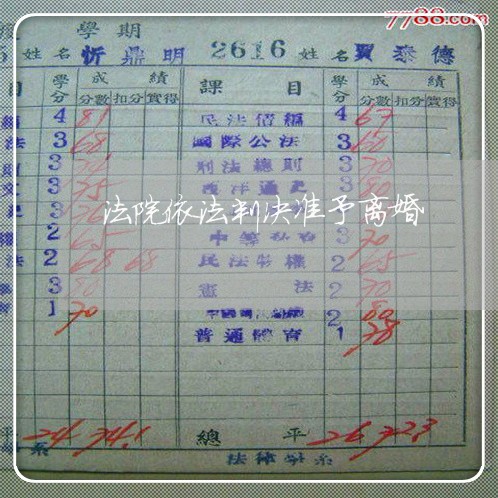 7788.com
學期
姓名 忻鼎明 2616 姓名 賈泰德
目 學分 成績 課目 學分 成績
分數 扣分 實得 分數 扣分 實得
4 81 民法債編 4 67
法 3 68 國際公法 3 60
3 刑法總則 3 70
3 75 西洋通史 3
3 76 3
2 65 中等私有 3 70
法 2 68 68 民法物權 2 65
3 80 憲法 2 70
1 70 2 80
普通體育 1 78
法院依法判决准予离婚
平 24 74.1 總平 26 72.3
系 法律學系